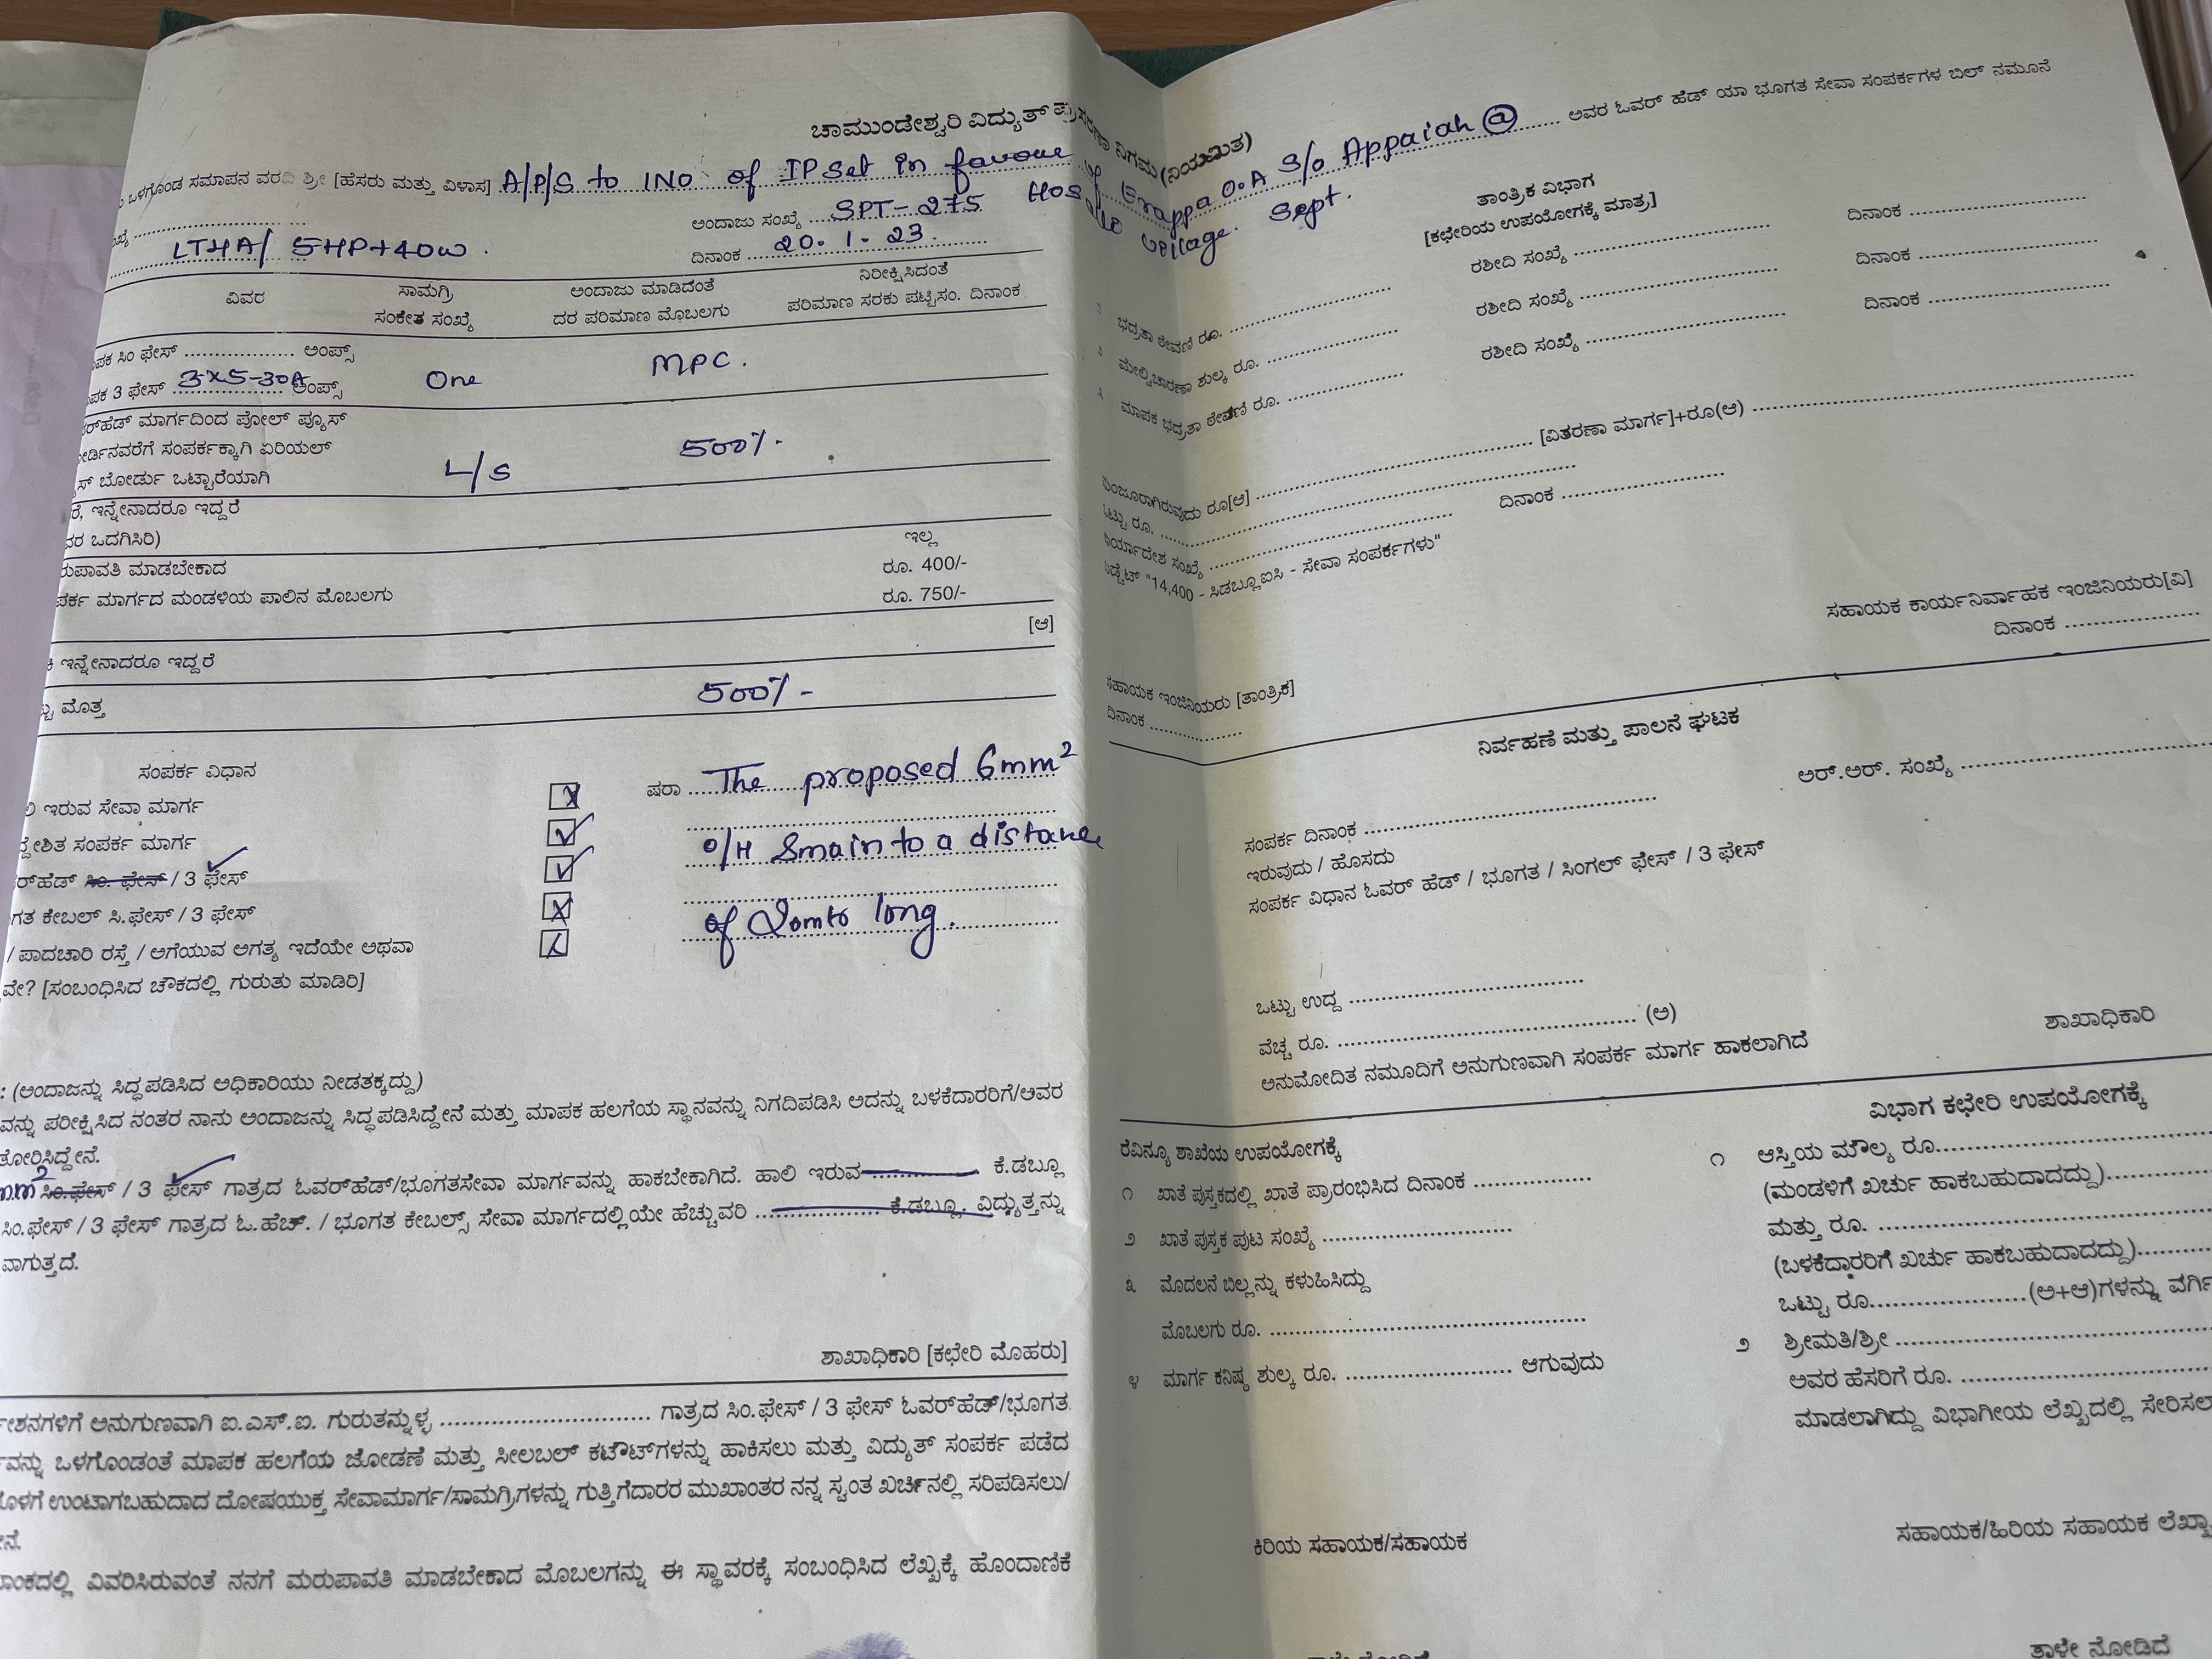 ಚಾಮುಂಡೇಶ್ವರಿ ವಿದ್ಯುತ್ ಪ್ರಸರಣಾ ನಿಗಮ (ನಿಯಮಿತ)
ಒಳಗೊಂಡ ಸಮಾಪನ ವರದಿ ಶ್ರೀ [ಹೆಸರು ಮತ್ತು ವಿಳಾಸ] A/P/S to 1NO of IP Set in favour of Erappa O.A S/o Appaiah @ ಅವರ ಓವರ್ ಹೆಡ್ ಯಾ ಭೂಗತ ಸೇವಾ ಸಂಪರ್ಕಗಳ ಬಿಲ್ ನಮೂನೆ
ಅಂದಾಜು ಸಂಖ್ಯೆ SPT-275
Sept.
LTHA/ 5HP+40W.
ದಿನಾಂಕ 20.1.23.
ವಿವರ
ಸಾಮಗ್ರಿ
ಸಂಕೇತ ಸಂಖ್ಯೆ
ಅಂದಾಜು ಮಾಡಿದಂತೆ
ದರ ಪರಿಮಾಣ ಮೊಬಲಗು
ನಿರೀಕ್ಷಿಸಿದಂತೆ
ಪರಿಮಾಣ ಸರಕು ಪಟ್ಟಿಸಂ. ದಿನಾಂಕ
ಪಕ ಸಿಂ ಫೇಸ್ .................. ಅಂಪ್ಸ್
ಪಕ 3 ಫೇಸ್ 3x5-30A ಅಂಪ್ಸ್ One MPC.
ರ್‌ಹೆಡ್ ಮಾರ್ಗದಿಂದ ಪೋಲ್ ಫ್ಯೂಸ್
ರ್ಡಿನವರೆಗೆ ಸಂಪರ್ಕಕ್ಕಾಗಿ ಏರಿಯಲ್
ಸ್ ಬೋರ್ಡು ಒಟ್ಟಾರೆಯಾಗಿ L/S 500/-
ರೆ, ಇನ್ನೇನಾದರೂ ಇದ್ದರೆ
ವರ ಒದಗಿಸಿರಿ)
ಇಲ್ಲ
ರುಪಾವತಿ ಮಾಡಬೇಕಾದ ರೂ. 400/-
ಪರ್ಕ ಮಾರ್ಗದ ಮಂಡಳಿಯ ಪಾಲಿನ ಮೊಬಲಗು ರೂ. 750/-
[ಆ]
ಇನ್ನೇನಾದರೂ ಇದ್ದರೆ
ಮೊತ್ತ 500/-
ಸಂಪರ್ಕ ವಿಧಾನ
ಲಿ ಇರುವ ಸೇವಾ ಮಾರ್ಗ
ದ್ದೇಶಿತ ಸಂಪರ್ಕ ಮಾರ್ಗ
ರ್‌ಹೆಡ್ ಸಿಂ. ಫೇಸ್ / 3 ಫೇಸ್
ಗತ ಕೇಬಲ್ ಸಿ.ಫೇಸ್ / 3 ಫೇಸ್
/ ಪಾದಚಾರಿ ರಸ್ತೆ / ಅಗೆಯುವ ಅಗತ್ಯ ಇದೆಯೇ ಅಥವಾ
ವೇ? [ಸಂಬಂಧಿಸಿದ ಚೌಕದಲ್ಲಿ ಗುರುತು ಮಾಡಿರಿ]
ಷರಾ The proposed 6mm²
O/H Smain to a distance
of long.
: (ಅಂದಾಜನ್ನು ಸಿದ್ಧಪಡಿಸಿದ ಅಧಿಕಾರಿಯು ನೀಡತಕ್ಕದ್ದು)
ವನ್ನು ಪರೀಕ್ಷಿಸಿದ ನಂತರ ನಾನು ಅಂದಾಜನ್ನು ಸಿದ್ಧಪಡಿಸಿದ್ದೇನೆ ಮತ್ತು ಮಾಪಕ ಹಲಗೆಯ ಸ್ಥಾನವನ್ನು ನಿಗದಿಪಡಿಸಿ ಅದನ್ನು ಬಳಕೆದಾರರಿಗೆ/ಅವರ
ತೋರಿಸಿದ್ದೇನೆ.
mm² ಸಿಂ.ಫೇಸ್ / 3 ಫೇಸ್ ಗಾತ್ರದ ಓವರ್‌ಹೆಡ್/ಭೂಗತಸೇವಾ ಮಾರ್ಗವನ್ನು ಹಾಕಬೇಕಾಗಿದೆ. ಹಾಲಿ ಇರುವ ............ ಕೆ.ಡಬ್ಲೂ
ಸಿಂ.ಫೇಸ್ / 3 ಫೇಸ್ ಗಾತ್ರದ ಓ.ಹೆಚ್. / ಭೂಗತ ಕೇಬಲ್ಸ್ ಸೇವಾ ಮಾರ್ಗದಲ್ಲಿಯೇ ಹೆಚ್ಚುವರಿ ............ ಕೆ.ಡಬ್ಲೂ. ವಿದ್ಯುತ್ತನ್ನು
ವಾಗುತ್ತದೆ.
ಶಾಖಾಧಿಕಾರಿ [ಕಛೇರಿ ಮೊಹರು]
ಶನಗಳಿಗೆ ಅನುಗುಣವಾಗಿ ಐ.ಎಸ್.ಐ. ಗುರುತನ್ನುಳ್ಳ .................. ಗಾತ್ರದ ಸಿಂ.ಫೇಸ್ / 3 ಫೇಸ್ ಓವರ್‌ಹೆಡ್/ಭೂಗತ
ವನ್ನು ಒಳಗೊಂಡಂತೆ ಮಾಪಕ ಹಲಗೆಯ ಜೋಡಣೆ ಮತ್ತು ಸೀಲಬಲ್ ಕಟೌಟ್‌ಗಳನ್ನು ಹಾಕಿಸಲು ಮತ್ತು ವಿದ್ಯುತ್ ಸಂಪರ್ಕ ಪಡೆದ
ಳಗೆ ಉಂಟಾಗಬಹುದಾದ ದೋಷಯುಕ್ತ ಸೇವಾಮಾರ್ಗ/ಸಾಮಗ್ರಿಗಳನ್ನು ಗುತ್ತಿಗೆದಾರರ ಮುಖಾಂತರ ನನ್ನ ಸ್ವಂತ ಖರ್ಚಿನಲ್ಲಿ ಸರಿಪಡಿಸಲು/
ನೆ.
ಾಂಕದಲ್ಲಿ ವಿವರಿಸಿರುವಂತೆ ನನಗೆ ಮರುಪಾವತಿ ಮಾಡಬೇಕಾದ ಮೊಬಲಗನ್ನು ಈ ಸ್ಥಾವರಕ್ಕೆ ಸಂಬಂಧಿಸಿದ ಲೆಖ್ಖಕ್ಕೆ ಹೊಂದಾಣಿಕೆ
ತಾಂತ್ರಿಕ ವಿಭಾಗ
[ಕಛೇರಿಯ ಉಪಯೋಗಕ್ಕೆ ಮಾತ್ರ]
ಭದ್ರತಾ ಠೇವಣಿ ರೂ. .................. ರಶೀದಿ ಸಂಖ್ಯೆ .................. ದಿನಾಂಕ ..................
ಮೇಲ್ವಿಚಾರಣಾ ಶುಲ್ಕ ರೂ. .................. ರಶೀದಿ ಸಂಖ್ಯೆ .................. ದಿನಾಂಕ ..................
ಮಾಪಕ ಭದ್ರತಾ ಠೇವಣಿ ರೂ. .................. ರಶೀದಿ ಸಂಖ್ಯೆ .................. ದಿನಾಂಕ ..................
ಮಂಜೂರಾಗಿರುವುದು ರೂ[ಆ] .................. [ವಿತರಣಾ ಮಾರ್ಗ]+ರೂ(ಆ) ..................
ಟ್ಟು ರೂ. ..................
ರ್ಯಾದೇಶ ಸಂಖ್ಯೆ .................. ದಿನಾಂಕ ..................
ಡ್ಜೆಟ್ "14,400 - ಸಿಡಬ್ಲೂಐಸಿ - ಸೇವಾ ಸಂಪರ್ಕಗಳು"
ಸಹಾಯಕ ಕಾರ್ಯನಿರ್ವಾಹಕ ಇಂಜಿನಿಯರು[ವಿ]
ದಿನಾಂಕ ..................
ಸಹಾಯಕ ಇಂಜಿನಿಯರು [ತಾಂತ್ರಿಕ]
ದಿನಾಂಕ ..................
ನಿರ್ವಹಣೆ ಮತ್ತು ಪಾಲನೆ ಘಟಕ
ಆರ್.ಆರ್. ಸಂಖ್ಯೆ ..................
ಸಂಪರ್ಕ ದಿನಾಂಕ ..................
ಇರುವುದು / ಹೊಸದು
ಸಂಪರ್ಕ ವಿಧಾನ ಓವರ್ ಹೆಡ್ / ಭೂಗತ / ಸಿಂಗಲ್ ಫೇಸ್ / 3 ಫೇಸ್
ಒಟ್ಟು ಉದ್ದ ..................
ವೆಚ್ಚ ರೂ. .................. (ಅ)
ಅನುಮೋದಿತ ನಮೂದಿಗೆ ಅನುಗುಣವಾಗಿ ಸಂಪರ್ಕ ಮಾರ್ಗ ಹಾಕಲಾಗಿದೆ
ಶಾಖಾಧಿಕಾರಿ
ರೆವಿನ್ಯೂ ಶಾಖೆಯ ಉಪಯೋಗಕ್ಕೆ
೧ ಖಾತೆ ಪುಸ್ತಕದಲ್ಲಿ ಖಾತೆ ಪ್ರಾರಂಭಿಸಿದ ದಿನಾಂಕ ..................
೨ ಖಾತೆ ಪುಸ್ತಕ ಪುಟ ಸಂಖ್ಯೆ ..................
೩ ಮೊದಲನೆ ಬಿಲ್ಲನ್ನು ಕಳುಹಿಸಿದ್ದು
ಮೊಬಲಗು ರೂ. ..................
೪ ಮಾರ್ಗ ಕನಿಷ್ಠ ಶುಲ್ಕ ರೂ. .................. ಆಗುವುದು
ಕಿರಿಯ ಸಹಾಯಕ/ಸಹಾಯಕ
ವಿಭಾಗ ಕಛೇರಿ ಉಪಯೋಗಕ್ಕೆ
೧ ಆಸ್ತಿಯ ಮೌಲ್ಯ ರೂ..................
(ಮಂಡಳಿಗೆ ಖರ್ಚು ಹಾಕಬಹುದಾದದ್ದು)..................
ಮತ್ತು ರೂ. ..................
(ಬಳಕೆದಾರರಿಗೆ ಖರ್ಚು ಹಾಕಬಹುದಾದದ್ದು)..................
ಒಟ್ಟು ರೂ..................(ಅ+ಆ)ಗಳನ್ನು ವರ್ಗಿ
೨ ಶ್ರೀಮತಿ/ಶ್ರೀ ..................
ಅವರ ಹೆಸರಿಗೆ ರೂ. ..................
ಮಾಡಲಾಗಿದ್ದು ವಿಭಾಗೀಯ ಲೆಖ್ಖದಲ್ಲಿ ಸೇರಿಸಲ
ಸಹಾಯಕ/ಹಿರಿಯ ಸಹಾಯಕ ಲೆಖ್ಖಾ
ತಾಳೇ ನೋಡಿದೆ